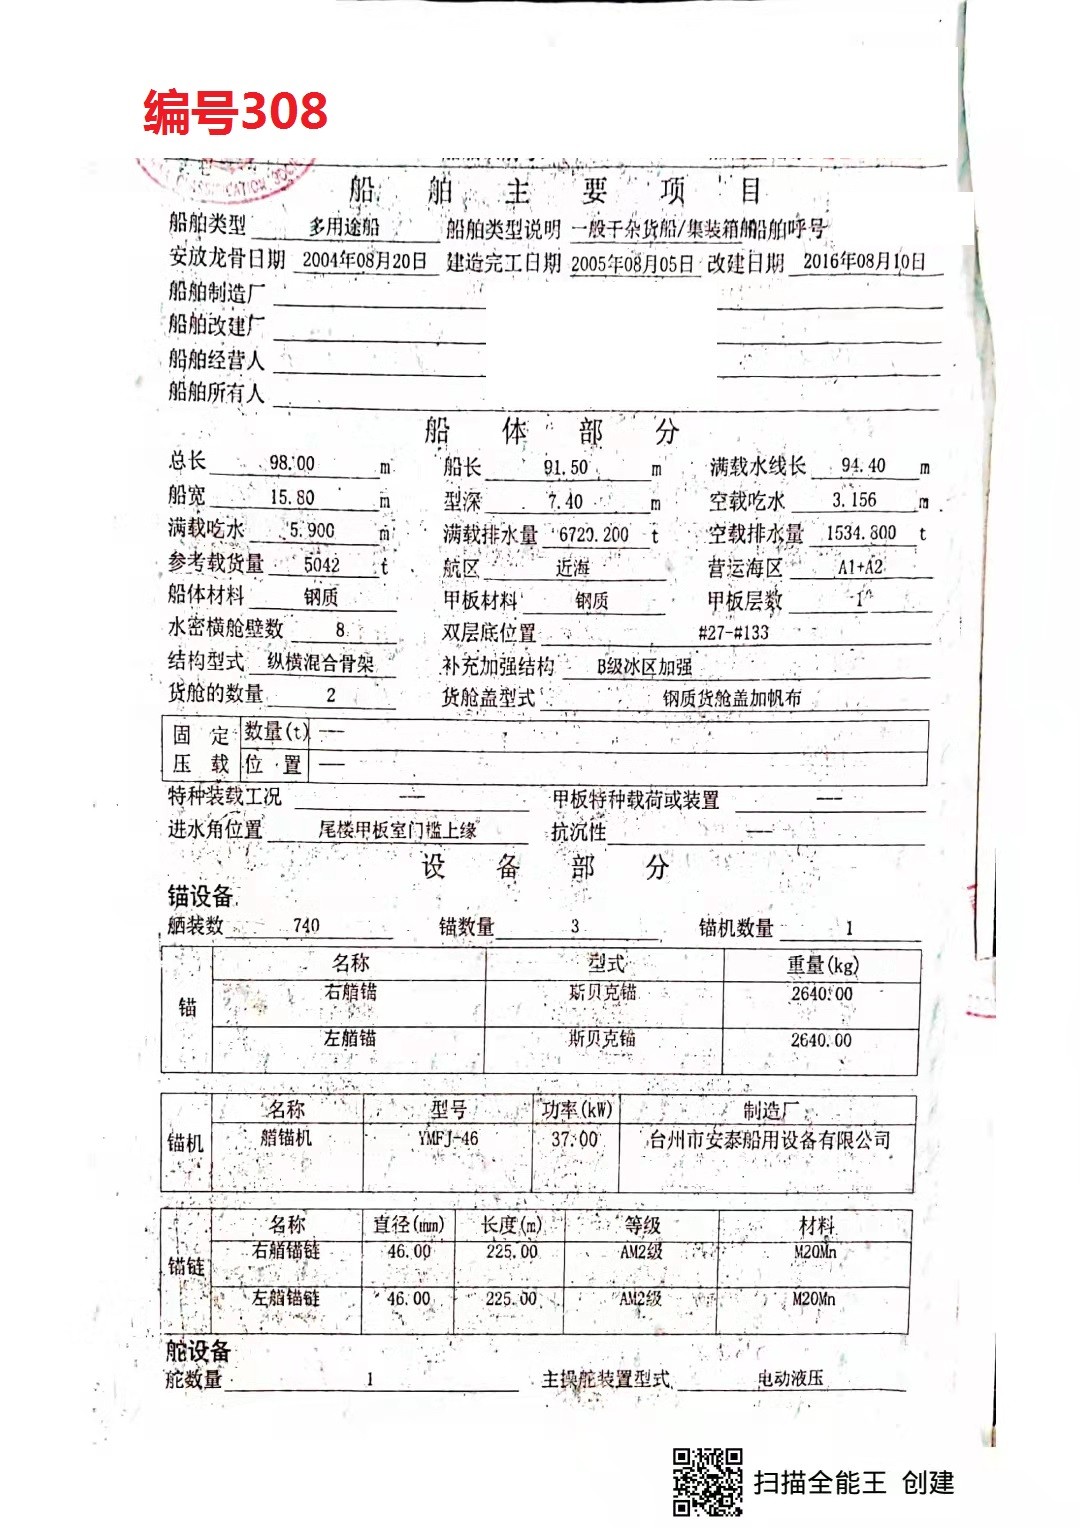 编号308
船舶主要项目
船舶类型 多用途船 船舶类型说明 一般干杂货船/集装箱船 船舶呼号
安放龙骨日期 2004年08月20日 建造完工日期 2005年08月05日 改建日期 2016年08月10日
船舶制造厂
船舶改建厂
船舶经营人
船舶所有人
船体部分
总长 98.00 m 船长 91.50 m 满载水线长 94.40 m
船宽 15.80 m 型深 7.40 m 空载吃水 3.156 m
满载吃水 5.900 m 满载排水量 6720.200 t 空载排水量 1534.800 t
参考载货量 5042 t 航区 近海 营运海区 A1+A2
船体材料 钢质 甲板材料 钢质 甲板层数 1
水密横舱壁数 8 双层底位置 #27-#133
结构型式 纵横混合骨架 补充加强结构 B级冰区加强
货舱的数量 2 货舱盖型式 钢质货舱盖加帆布
固定压载 数量(t) ---
位置 ---
特种装载工况 --- 甲板特种载荷或装置 ---
进水角位置 尾楼甲板室门槛上缘 抗沉性 ---
设备部分
锚设备
舾装数 740 锚数量 3 锚机数量 1
锚 名称 型式 重量(kg)
右艏锚 斯贝克锚 2640.00
左艏锚 斯贝克锚 2640.00
锚机 名称 型号 功率(kW) 制造厂
艏锚机 YMFJ-46 37.00 台州市安泰船用设备有限公司
锚链 名称 直径(mm) 长度(m) 等级 材料
右艏锚链 46.00 225.00 AM2级 M20Mn
左艏锚链 46.00 225.00 AM2级 M20Mn
舵设备
舵数量 1 主操舵装置型式 电动液压
扫描全能王 创建